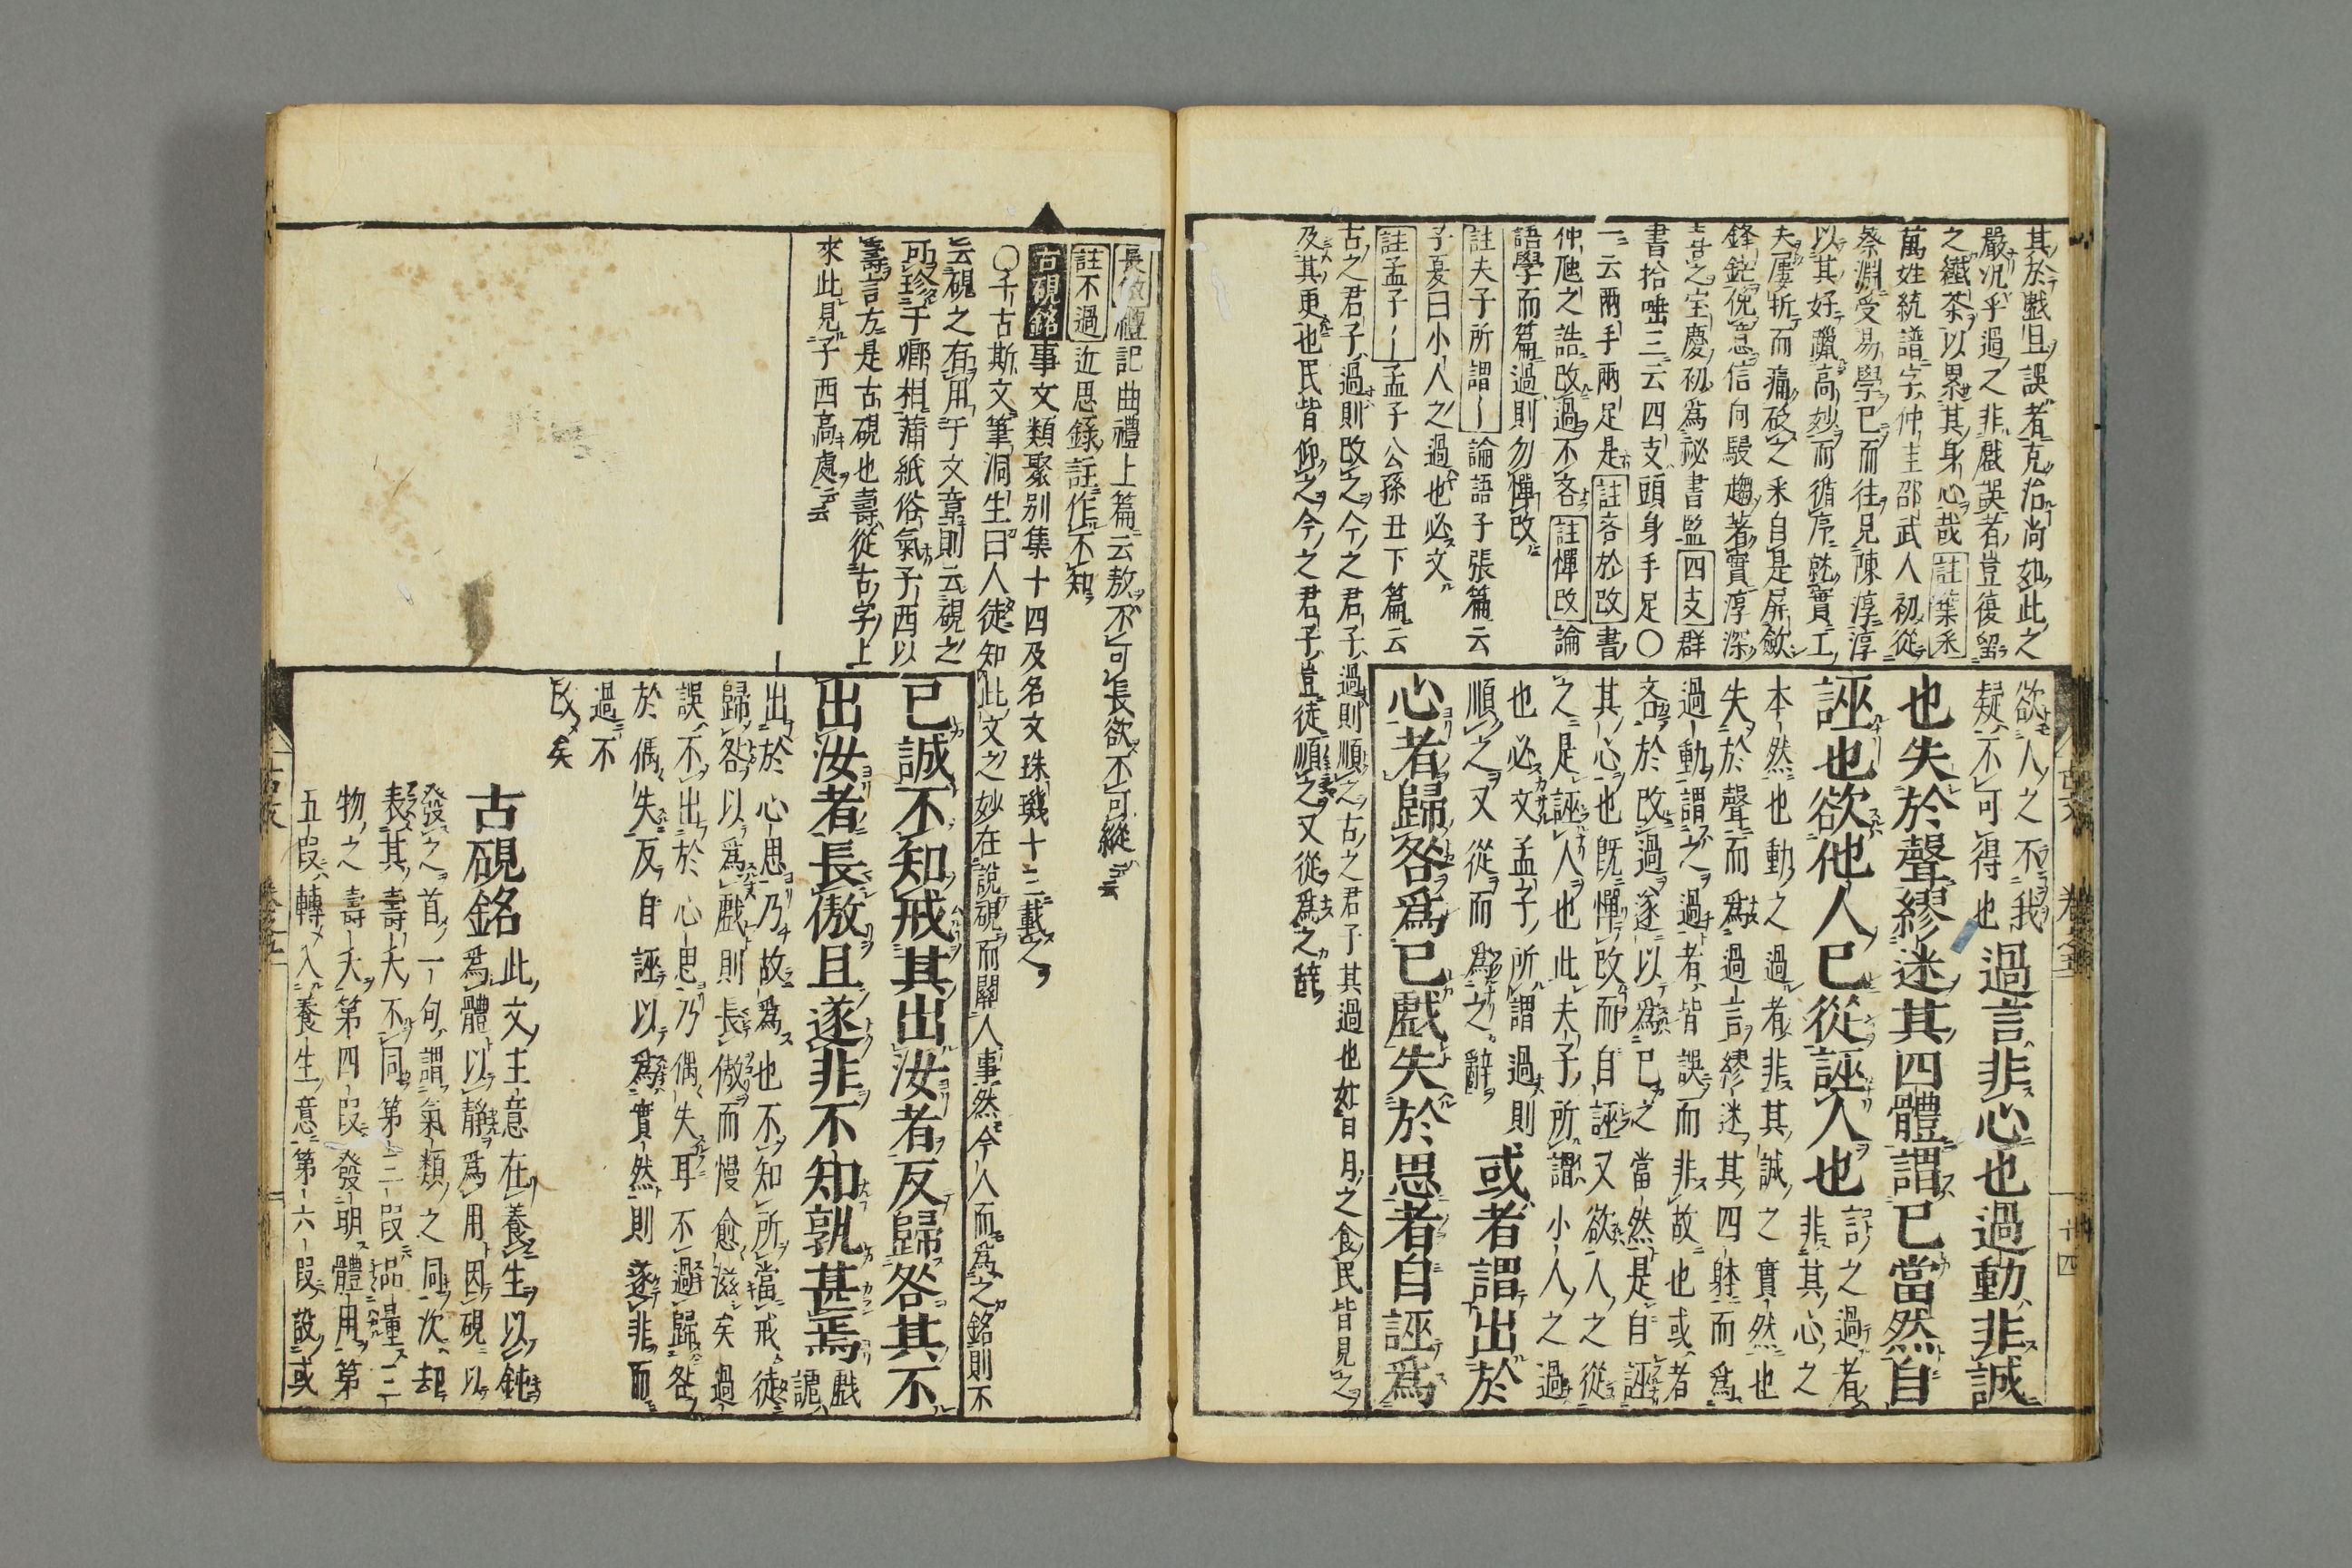 其於戲且誤者克治尚如此之
嚴況乎過之非戲誤者豈復留
之纖芥以累其身心哉 註蔡釆
萬姓統譜字仲圭邵武人初從
蔡淵受易學已而往見陳淳淳
以其好躐高妙而循序就實工
夫屢折而痛砭之釆自是屏斂
鋒銳俛意信向駸趨著實淳深
喜之宝慶初爲祕書監 四支 群
書拾唾三云四支頭身手足〇
一云兩手兩足是 註吝於改 書
仲虺之誥改過不吝 註憚改 論
語學而篇過則勿憚改
註夫子所謂〡 論語子張篇云
子夏曰小人之過也必文
註孟子〡〡 孟子公孫丑下篇云
古之君子過則改之今之君子過則順之古之君子其過也如日月之食民皆見之
及其更也民皆仰之今之君子豈徒順之又從爲之辭
欲人之不我
疑不可得也 過言非心也過動非誠
也失於聲繆迷其四體謂己當然自
誣也欲他人己從誣人也 言之過者非其心之
本然也動之過者非其誠之實然也
失於聲而爲過言繆迷其四躰而爲
過動謂之過者皆誤而非故也或者
吝於改過遂以爲己之當然是自誣
其心也旣憚改而自誣又欲人之從
之是誣人也此夫子所謂小人之過
也必文孟子所謂過則
順之又從而爲之辭 或者謂出於
心者歸咎爲己戲失於思者自誣爲
古文 卷之五 廿四
長傲 禮記曲禮上篇云敖不可長欲不可縱云云
註不過 近思錄註作不知
古硯銘 事文類聚別集十四及名文珠璣十二載之
〇子古斯文筆洞生曰人徒知此文之妙在說硯而關人事然今人而爲之銘則不
云硯之有用于文章則云硯之
可珍于櫛相蒲紙俗氣子西以
壽言方是古硯也壽從古字上
來此見子西高處云云
己誠不知戒其出汝者反歸咎其不
出汝者長傲且遂非不知孰甚焉 戲謔
出於心思乃故爲也不知所當戒徒
歸咎以爲戲則長傲而慢愈滋矣過
誤不出於心思乃偶失耳不過歸咎
於偶失反自誣以爲實然則遂非而
過不
改矣
古硯銘 此文主意在養生以鈍
爲體以静爲用因硯以
發之首一句謂氣類之同次却
表其壽夭不同第三段品量三
物之壽夭第四段發明體用第
五段轉入養生意第六段設或
古文 卷之五